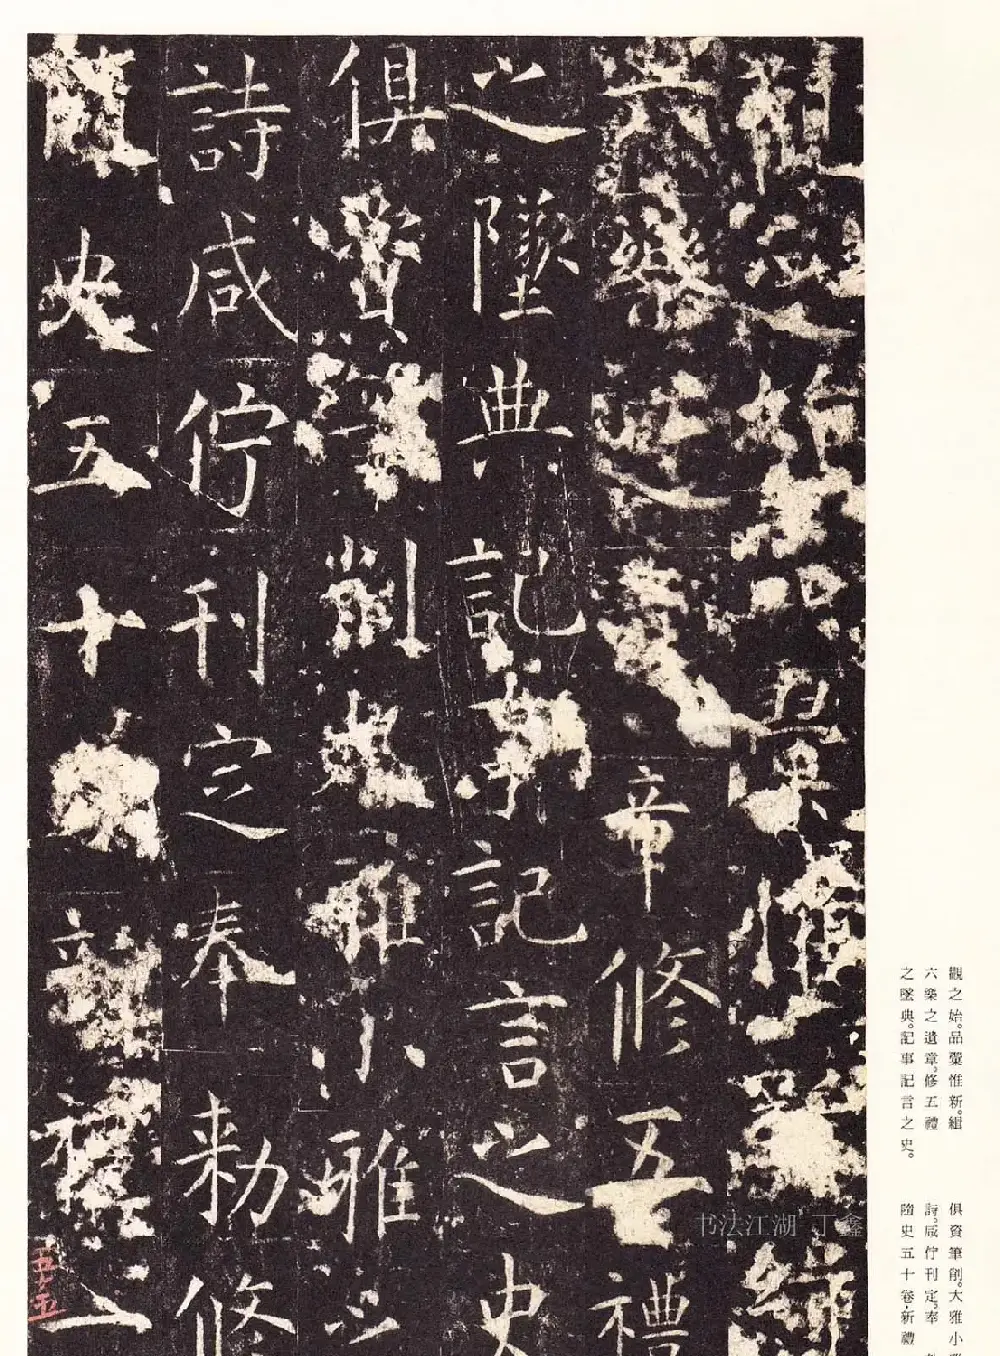 觀之始品彙惟新緝
六樂之遺章修五禮
之墜典記事記言之史
俱資筆削大雅小雅之
詩咸佇刊定奉勅修
隋史五十卷新禮一
五十五
觀之始。品彙惟新。緝
六樂之遺章。修五禮
之墜典。記事記言之史。
俱資筆削。大雅小
詩。咸佇刊定。奉
隋史五十卷·新禮
书法江湖 丁鑫